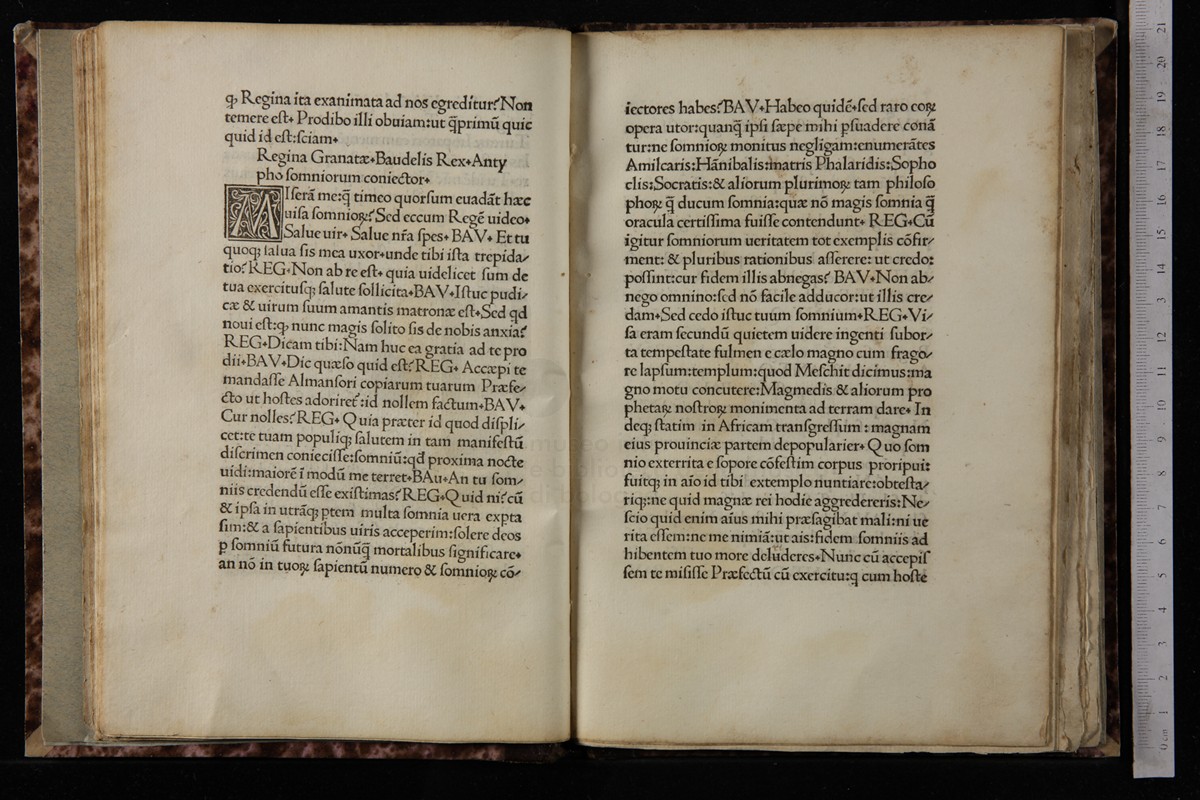 ꝙ Regina ita exanimata ad nos egreditur? Non
temere est. Prodibo illi obuiam: ut q̃primũ quic
quid id est: sciam.
Regina Granatæ. Baudelis Rex. Anty
pho somniorum coniector.
MIserã me: q̃ timeo quorsum euadãt hæc
uisa somnioꝝ? Sed eccum Regẽ uideo.
Salue uir. Salue nr̃a spes. BAV. Et tu
quoqꝫ salua sis mea uxor. unde tibi ista trepida/
tio? REG. Non ab re est. quia uidelicet sum de
tua exercitusqꝫ salute sollicita. BAV. Istuc pudi/
cæ & uirum suum amantis matronæ est. Sed qd
noui est: ꝙ nunc magis solito sis de nobis anxia?
REG. Dicam tibi: Nam huc ea gratia ad te pro
dii. BAV. Dic quæso quid est? REG. Accæpi te
mandasse Almansori copiarum tuarum Præfe/
cto ut hostes adoriret̃: id nollem factum. BAV.
Cur nolles? REG. Quia præter id quod displi/
cet: te tuam populiqꝫ salutem in tam manifestũ
discrimen coniecisse: somniũ: qđ proxima nocte
uidi: maiorẽ ĩ modũ me terret. BAu. An tu som/
niis credendũ esse existimas? REG. Quid ni? cũ
& ipsa in utrãqꝫ ꝑtem multa somnia uera expta
sim: & a sapientibus uiris acceperim: solere deos
ꝑ somniũ futura nõnũq̃ mortalibus significare.
an nõ in tuoꝝ sapientũ numero & somnioꝝ cõ/
iectores habes? BAV. Habeo quidẽ. sed raro eoꝝ
opera utor: quanq̃ ipsi sæpe mihi ꝑsuadere conã
tur: ne somnioꝝ monitus negligam: enumerãtes
Amilcaris: Hãnibalis: matris Phalaridis: Sopho
clis: Socratis: & aliorum plurimoꝝ tam philoso
phoꝝ q̃ ducum somnia: quæ nõ magis somnia q̃
oracula certissima fuisse contendunt. REG. Cũ
igitur somniorum ueritatem tot exemplis cõfir/
ment: & pluribus rationibus asserere: ut credo:
possint: cur fidem illis abnegas? BAV. Non ab/
nego omnino: sed nõ facile adducor: ut illis cre/
dam. Sed cedo istuc tuum somnium. REG. Vi/
sa eram secundũ quietem uidere ingenti subor/
ta tempestate fulmen e cælo magno cum frago/
re lapsum: templum: quod Meschit dicimus: ma
gno motu concutere: Magmedis & aliorum pro
phetaꝝ nostroꝝ monimenta ad terram dare. In
deqꝫ statim in Africam transgressum : magnam
eius prouinciæ partem depopularier. Quo som
nio exterrita e sopore cõfestim corpus proripui:
fuitqꝫ in aĩo id tibi extemplo nuntiare: obtesta/
riqꝫ: ne quid magnæ rei hodie aggredereris: Ne/
scio quid enim aĩus mihi præsagibat mali: ni ue
rita essem: ne me nimiã: ut ais: fidem somniis ad
hibentem tuo more deluderes. Nunc cũ accepis
sem te misisse Præfectũ cũ exercitu: q cum hoste